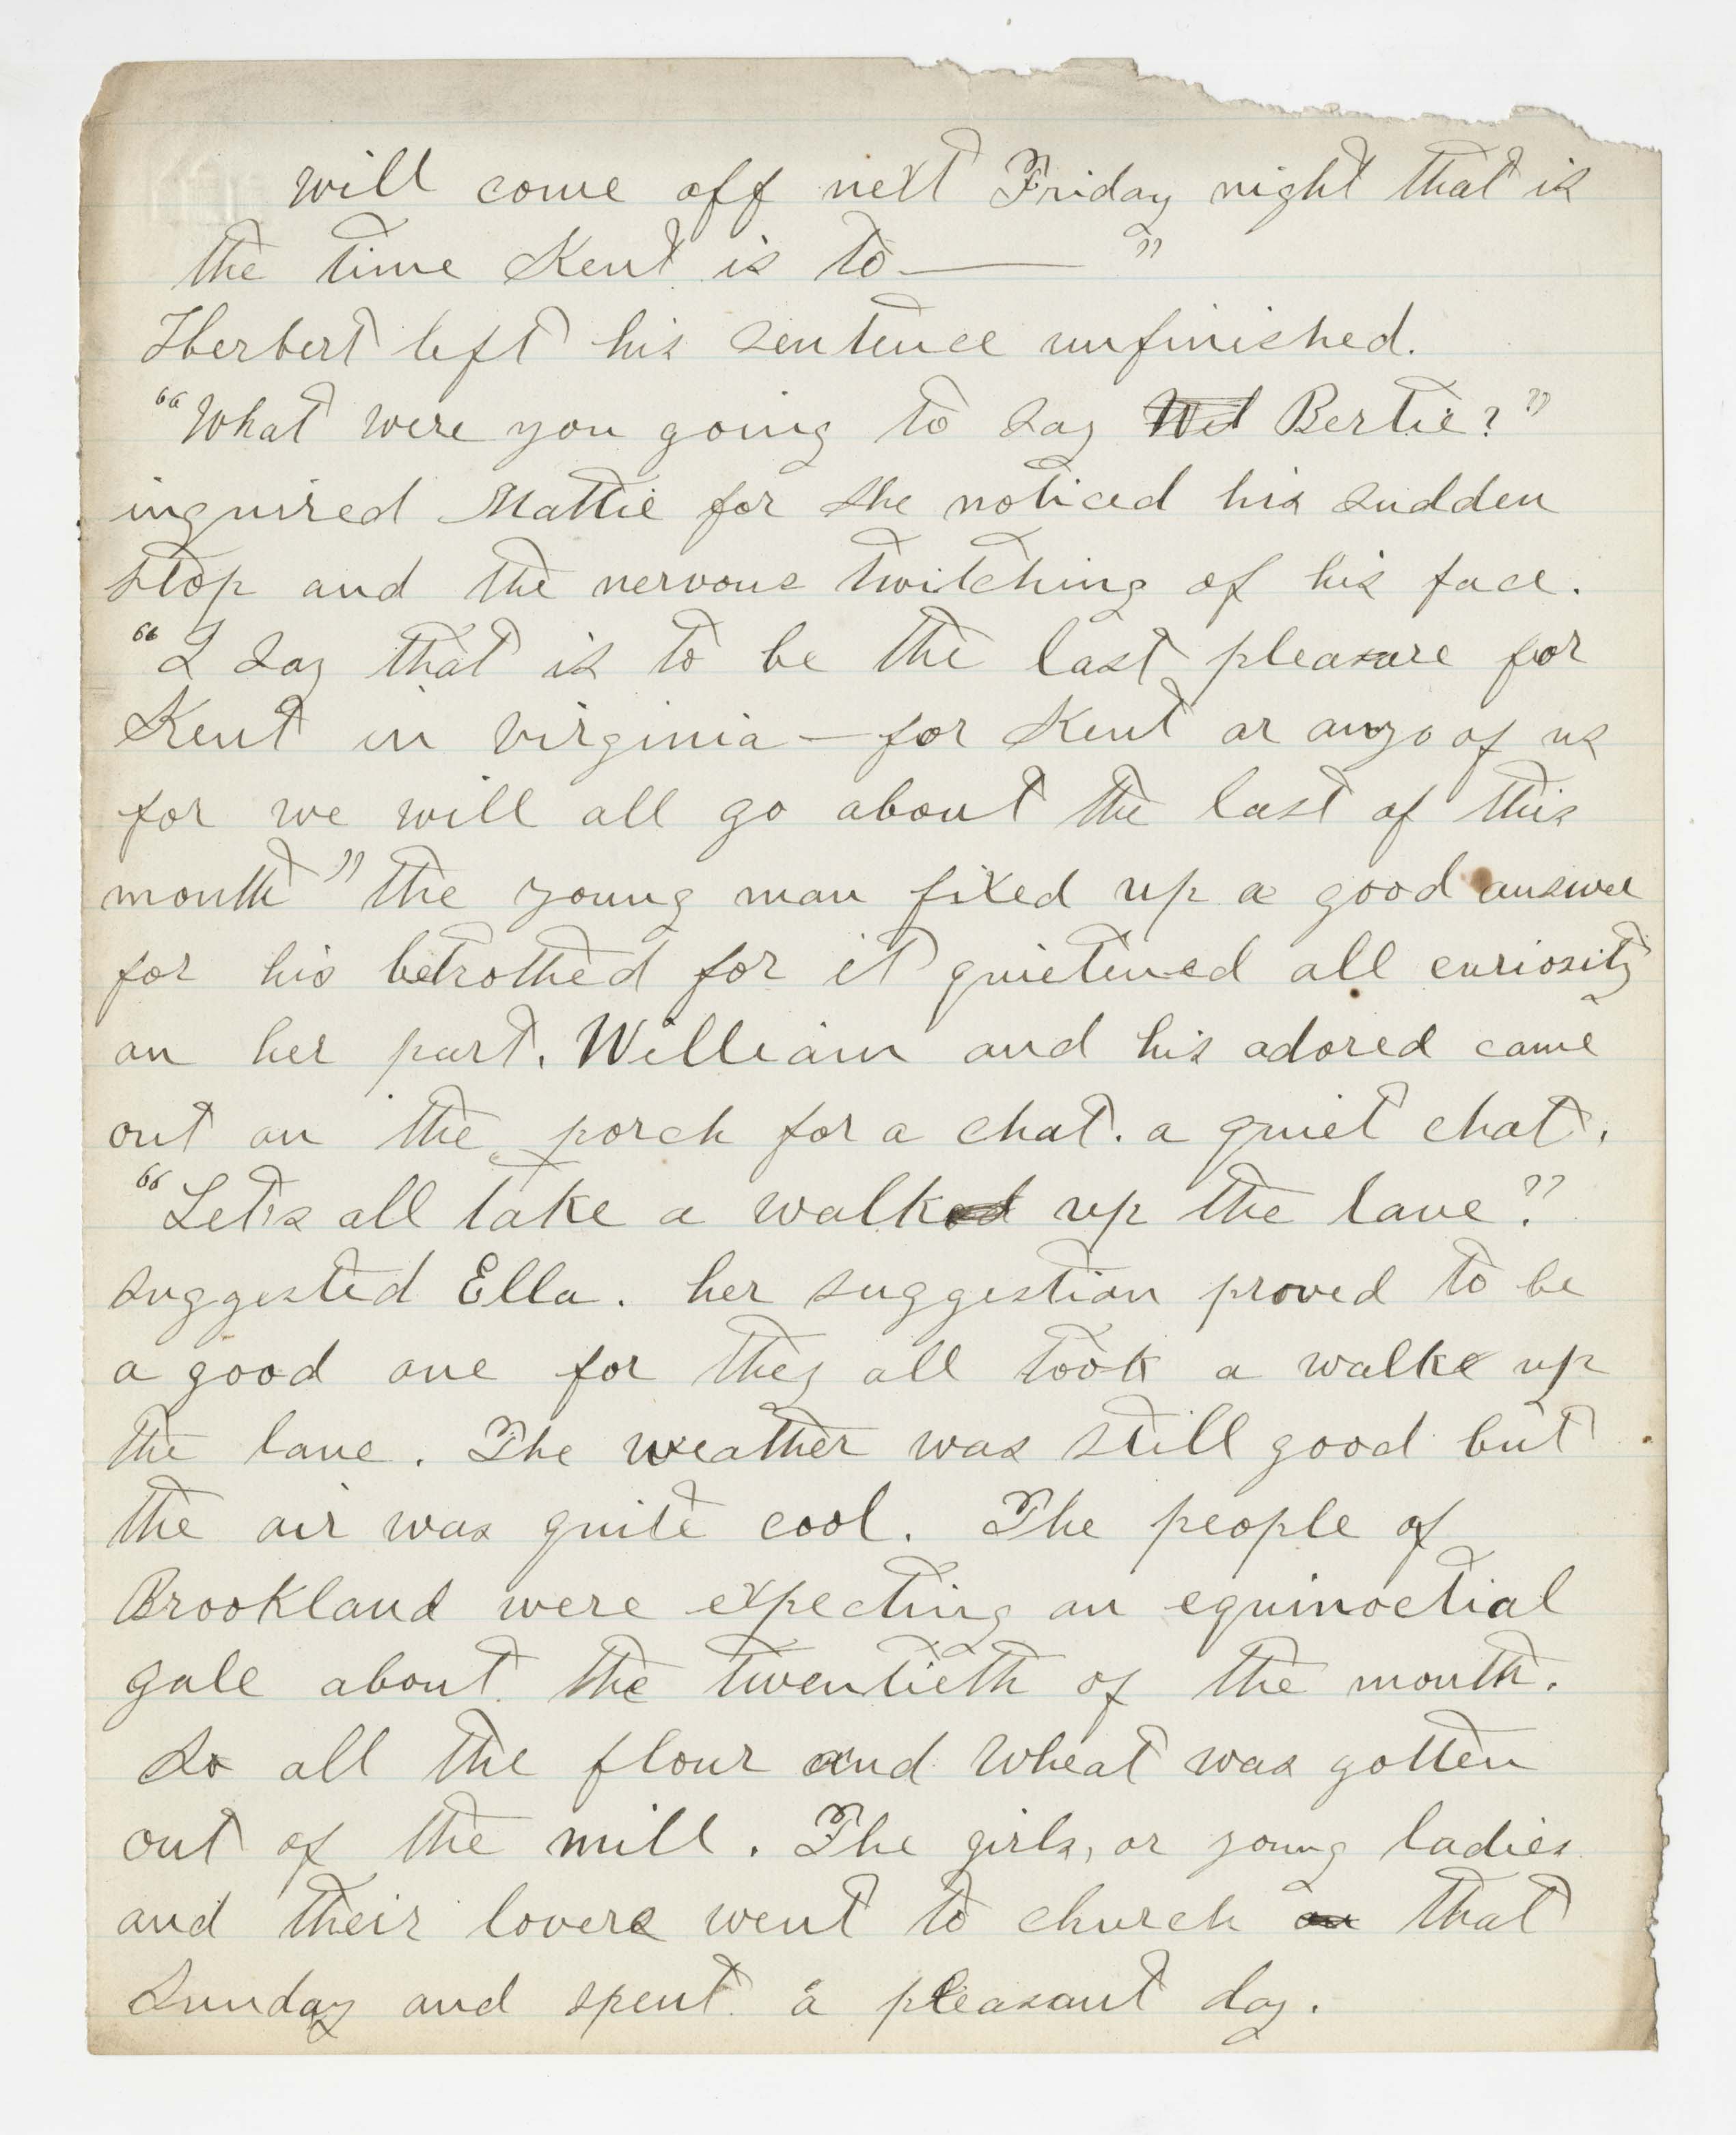 will come off next Friday night that is
the time Kent is to — "
Herbert left his sentence unfinished.
"What were you going to say Wil Bertie?"
inquired Mattie for she noticed his sudden
stop and the nervous twitching of his face.
"I say that is to be the last pleasure for
Kent in Virginia — for Kent or any of us
for we will all go about the last of this
month" the young man fixed up a good answer
for his betrothed for it quietened all curiosity
on her part. William and his adored came
out on the porch for a chat. a quiet chat.
"Let's all take a walk up the lane?"
suggested Ella. her suggestion proved to be
a good one for they all took a walk up
the lane. The weather was still good but
the air was quite cool. The people of
Brookland were expecting an equinoctial
gale about the twentieth of the month.
So all the flour and wheat was gotten
out of the mill. The girls, or young ladies
and their lovers went to church on that
Sunday and spent a pleasant day.